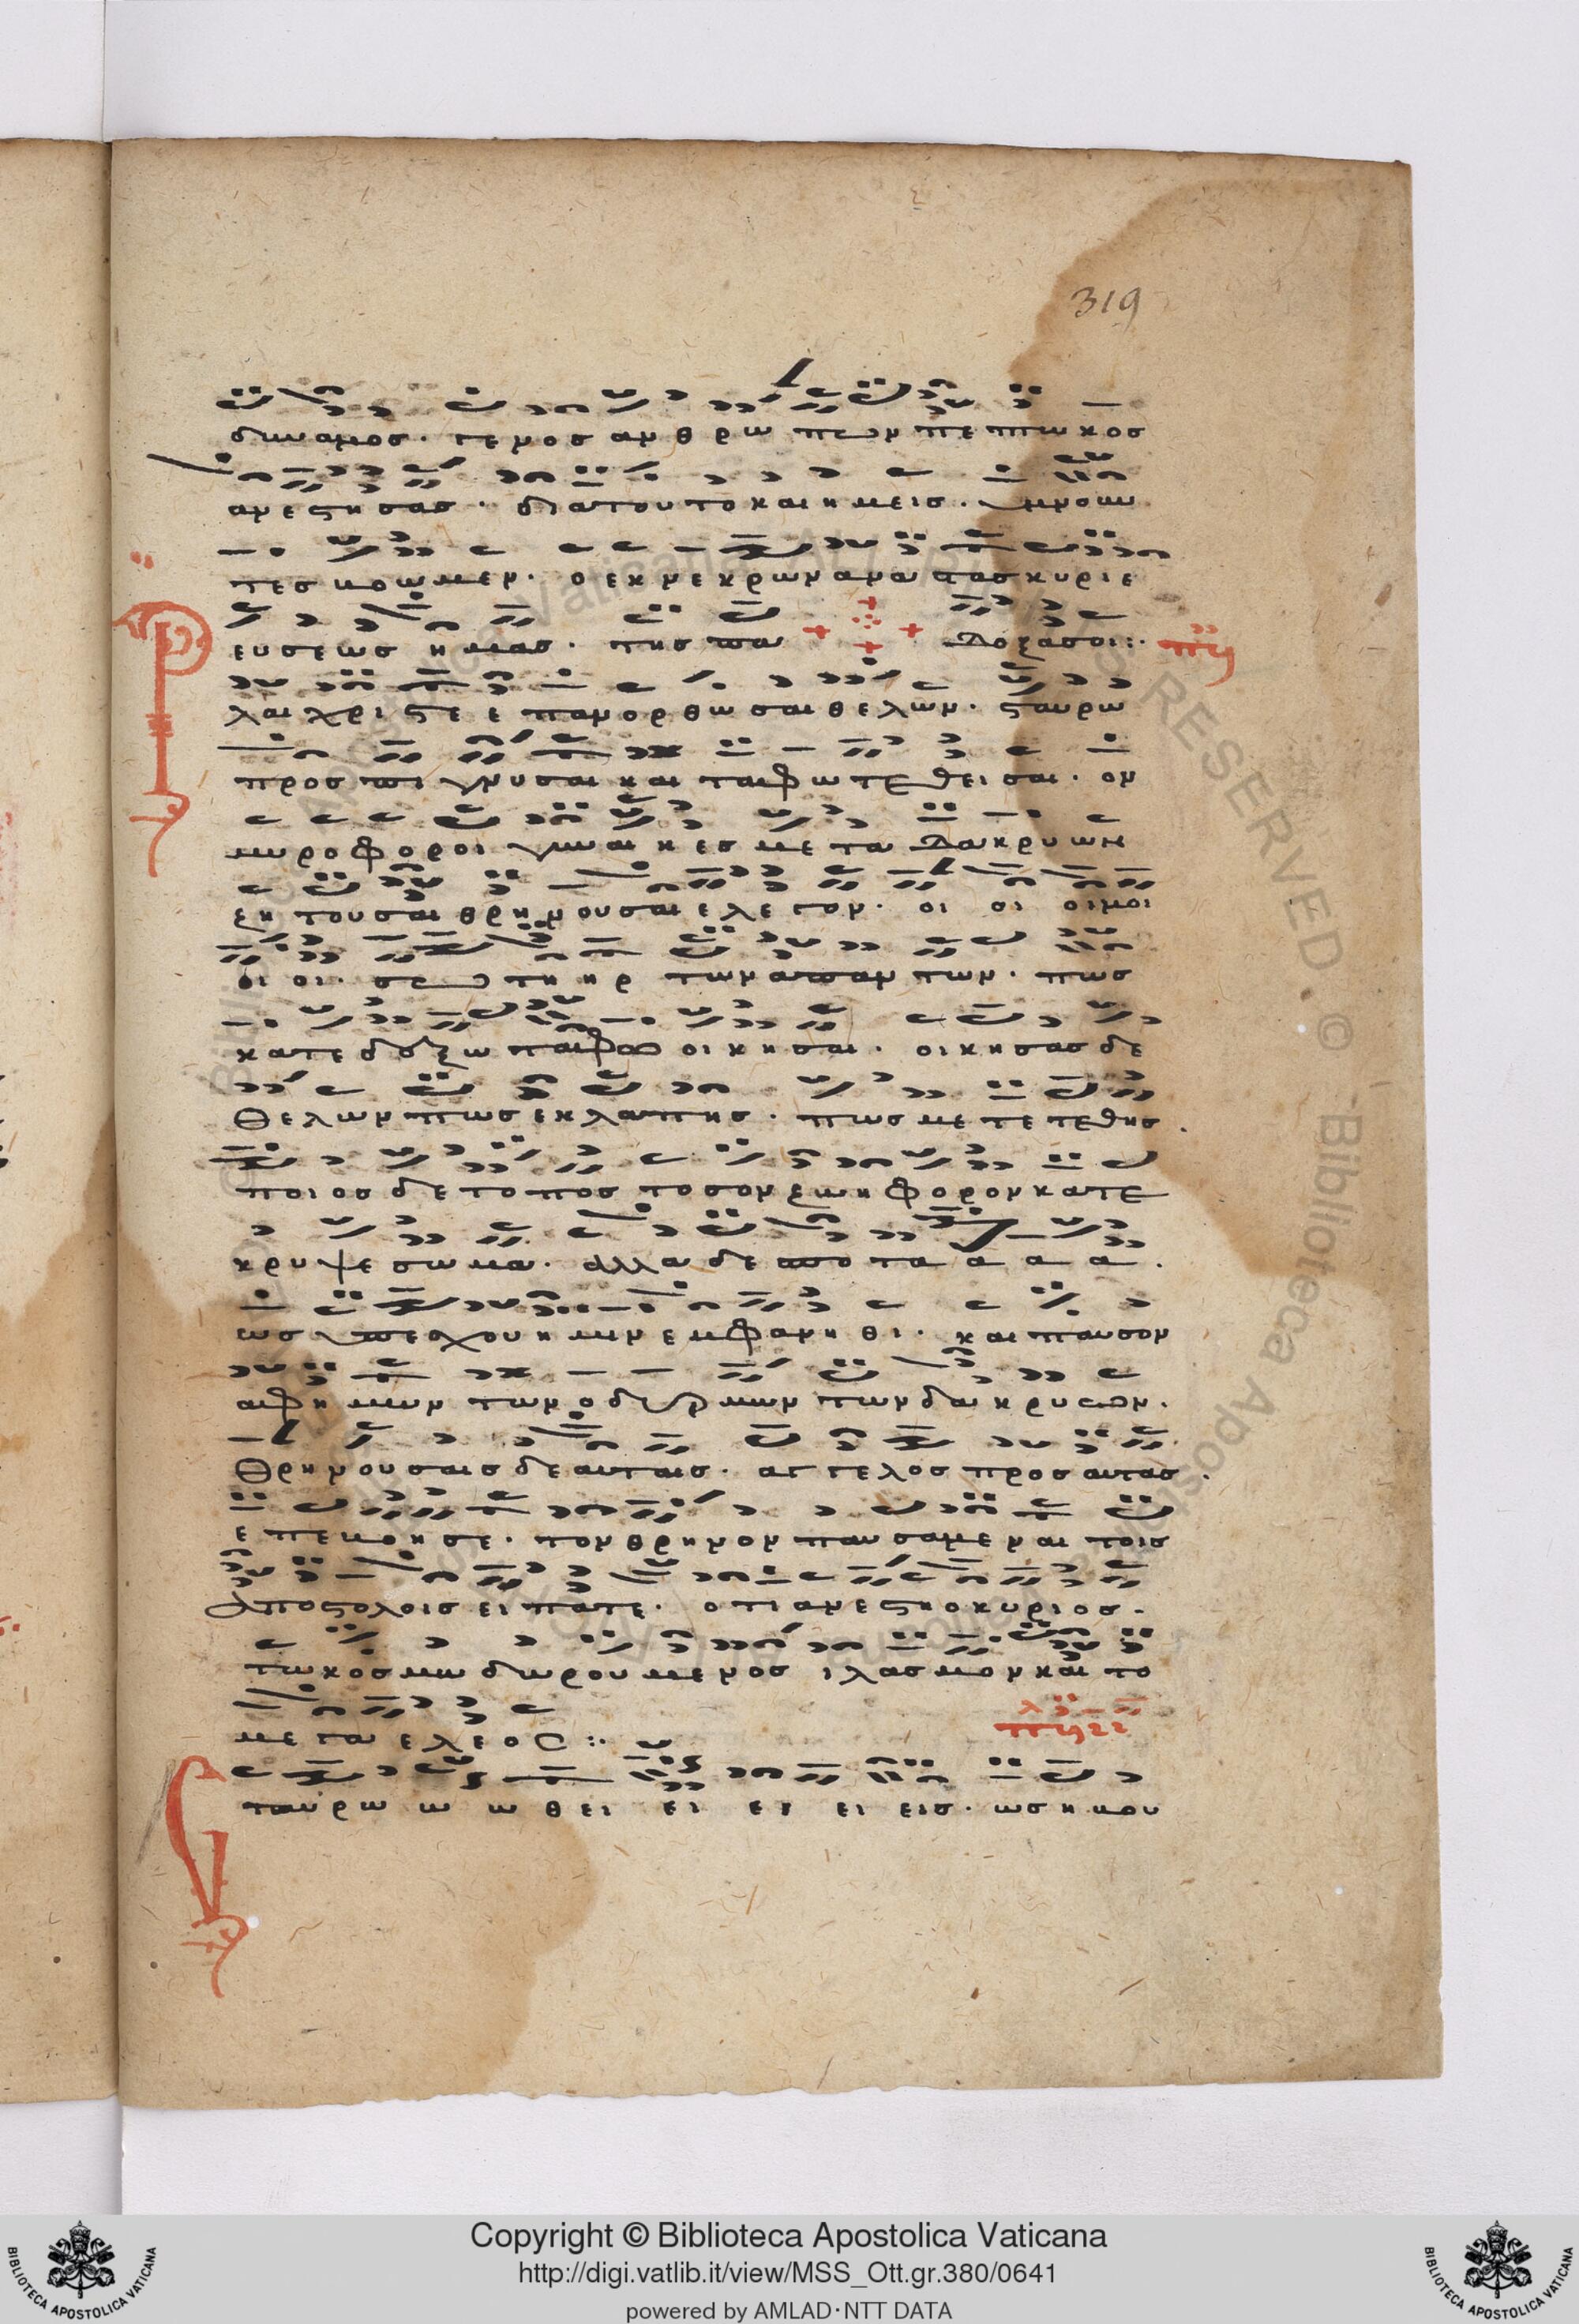 319
δυναμοσ· γενοσ ανθρωπων πεπτωκοσ
ανεστησασ· δια τουτο και ημεισ· υμνουν
τεσ βοωμεν· ο εκ νεκρων αναστασ κυριε
ευσεωσ ημασ· τησ παλ Δοξασοι:·
λαι χριστε ε πανορθωσαι θελων· σταυρω
προσπηγνυσαι και ταφω τεθεισαι· ον
μυροφοροι γυναικεσ μετα Δακρυων
ζητουσαι θρηνουσαι ελεγον· οι οι οιμοι
οι οι· σωτηηρ των απαντων· πωσ
κατεδεξω ταφον οικησαι· οικησασ δε
θελων πωσ εκλαπησ· πωσ μετετεθησ·
ποιοσ δε τοποσ το σον ζωηφορον κατε
κρυψε σωμα· αλλα δεσποτα α α α·
ωσ υπεσχου ημιν εμφανηθι· και παυσον
αφ ημων των οδυρμων των δακρυων·
θρηνουσαισ δε αυταισ· αγγελοσ προσ αυτασ·
ε πεβοησε· τον θρηνον παυσαμεναι τοισ
αποστολοισ ειπατε· οτι ανεστη ο κυριοσ·
τω κοσμω δωρουμενοσ ιλασμον και το
μεγα ελεος:·
Σ ταυρω ω ω θει ει ει ει εισ· ωσ ηβου
Copyright © Biblioteca Apostolica Vaticana
http://digi.vatlib.it/view/MSS_Ott.gr.380/0641
powered by AMLAD·NTT DATA
BIBLIOTECA APOSTOLICA VATICANA
BIBLIOTECA APOSTOLICA VATICANA